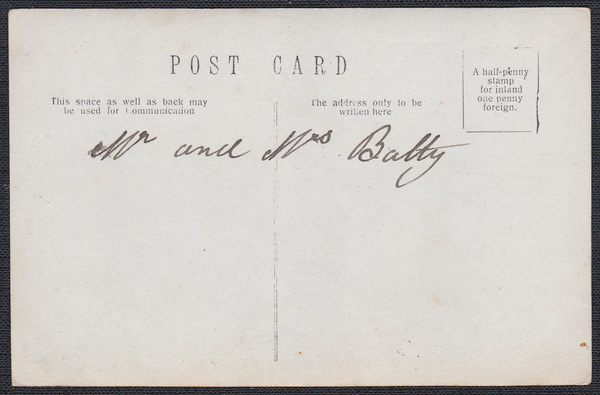 POST CARD
A half-penny
stamp
for inland
one penny
foreign.
This space as well as back may
be used for Communication
The address only to be
written here
Mr and Mrs Batty